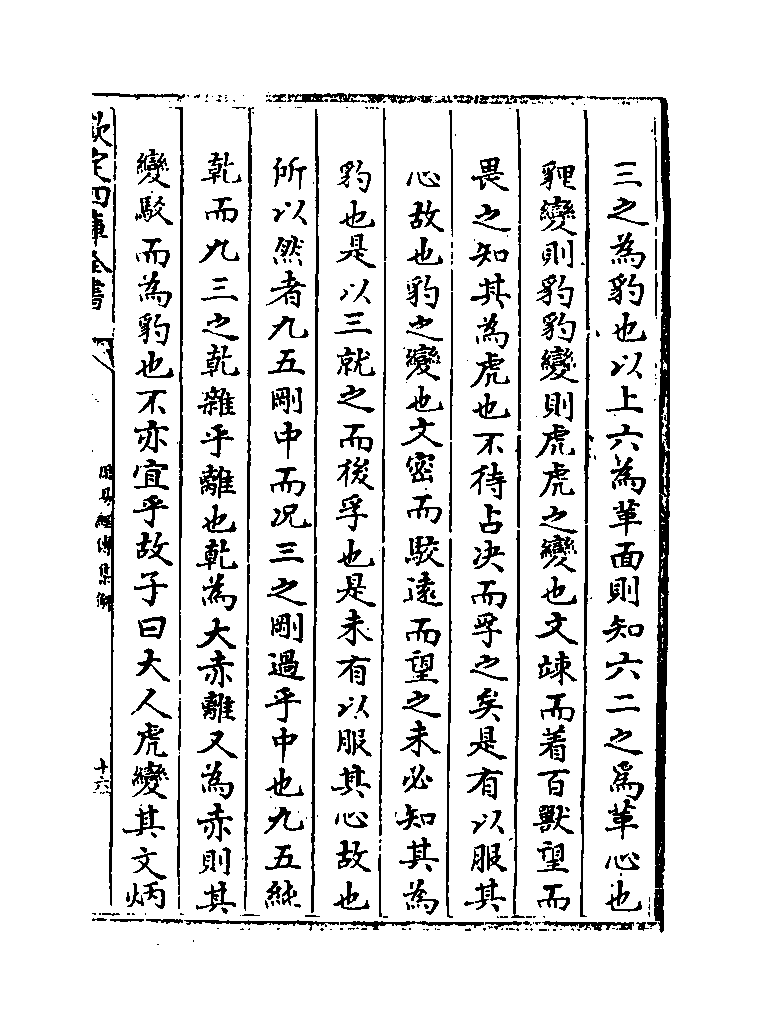 三之為豹也以上六為革面則知六二之爲革心也
貍變則豹豹變則虎虎之變也文踈而着百獸望而
畏之知其為虎也不待占决而孚之矣是有以服其
心故也豹之變也文密而駁遠而望之未必知其為
豹也是以三就之而後孚也是未有以服其心故也
所以然者九五剛中而况三之剛過乎中也九五純
乾而九三之乾雜乎離也乾為大赤離又為赤則其
變駁而為豹也不亦宜乎故子曰大人虎變其文炳
欽定四庫全書
周易經傳集解
十六